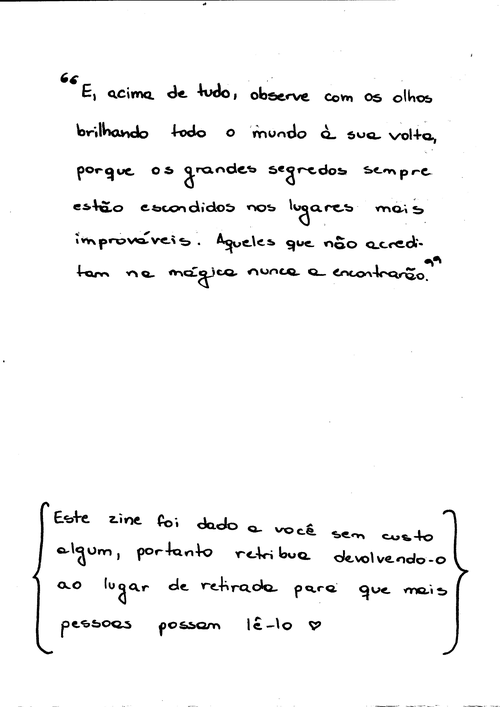 “E, acima de tudo, observe com os olhos
brilhando todo o mundo à sua volta,
porque os grandes segredos sempre
estão escondidos nos lugares mais
improváveis. Aqueles que não acredi-
tam na mágica nunca a encontrarão.”
Este zine foi dado a você sem custo
algum, portanto retribua devolvendo-o
ao lugar de retirada para que mais
pessoas possam lê-lo ♡